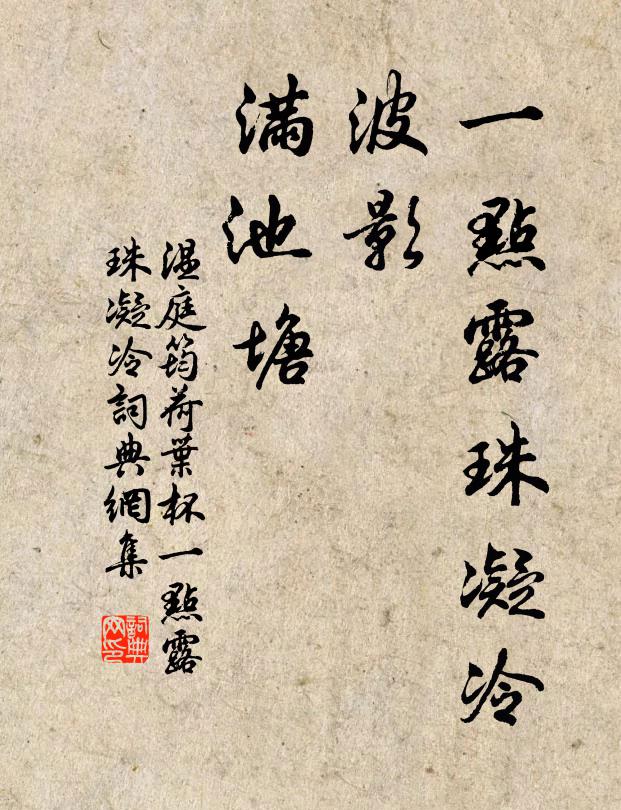 一點露珠凝冷
波影
滿池塘
温庭筠荷葉杯一點露
珠凝冷詞典網集
詞典
网印